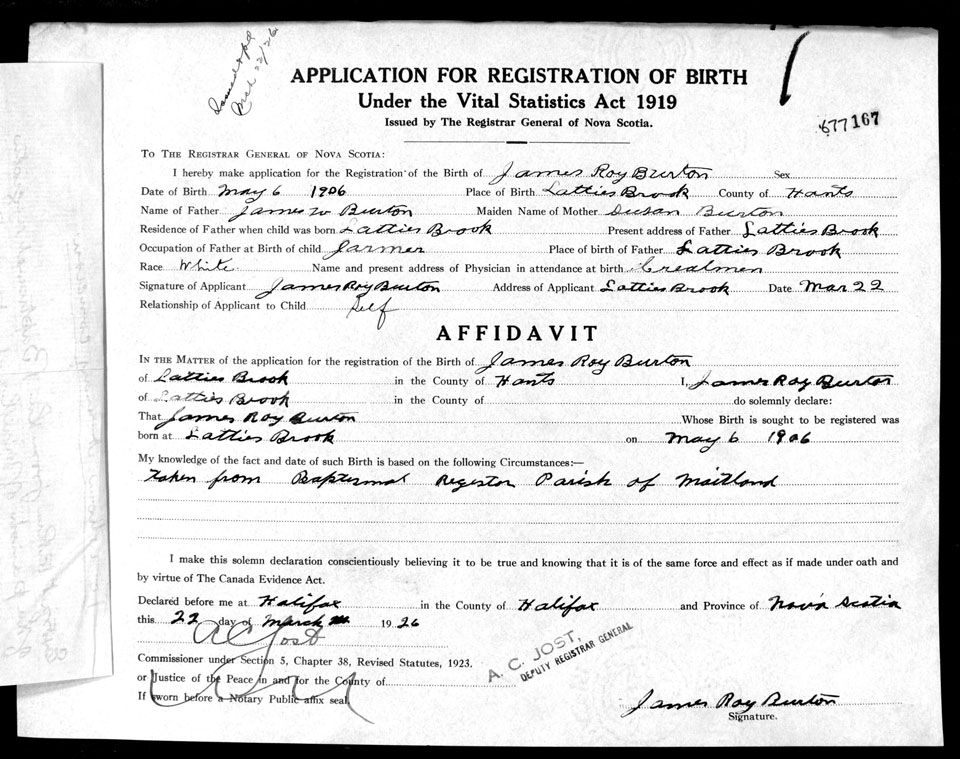 Mch 22/26
APPLICATION FOR REGISTRATION OF BIRTH
Under the Vital Statistics Act 1919
Issued by The Registrar General of Nova Scotia.
677167
TO THE REGISTRAR GENERAL OF NOVA SCOTIA:
I hereby make application for the Registration of the Birth of James Roy Burton Sex
Date of Birth May 6 1906 Place of Birth Latties Brook County of Hants
Name of Father James W Burton Maiden Name of Mother Susan Burton
Residence of Father when child was born Latties Brook Present address of Father Latties Brook
Occupation of Father at Birth of child Farmer Place of birth of Father Latties Brook
Race White Name and present address of Physician in attendance at birth
Signature of Applicant James Roy Burton Address of Applicant Latties Brook Date Mar 22
Relationship of Applicant to Child Self
AFFIDAVIT
IN THE MATTER of the application for the registration of the Birth of James Roy Burton
of Latties Brook in the County of Hants I, James Roy Burton
of Latties Brook in the County of do solemnly declare:
That James Roy Burton Whose Birth is sought to be registered was
born at Latties Brook on May 6 1906
My knowledge of the fact and date of such Birth is based on the following Circumstances:—
taken from Baptermal Register Parish of Maitland
I make this solemn declaration conscientiously believing it to be true and knowing that it is of the same force and effect as if made under oath and
by virtue of The Canada Evidence Act.
Declared before me at Halifax in the County of Halifax and Province of Nova Scotia
this 22 day of March 1926
A C Jost
A. C. JOST,
DEPUTY REGISTRAR GENERAL
Commissioner under Section 5, Chapter 38, Revised Statutes, 1923.
or Justice of the Peace in and for the County of
If sworn before a Notary Public affix seal.
James Roy Burton
Signature.